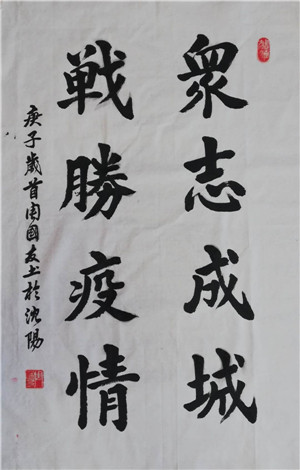 眾志成城
戰勝疫情
庚子歲首周國友书於沈陽